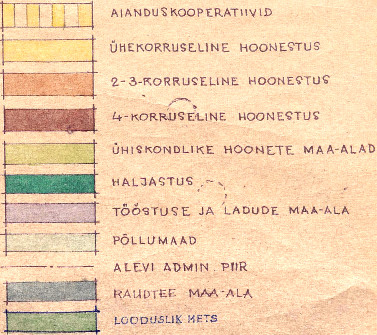 AIANDUSKOOPERATIIVID
ÜHEKORRUSELINE HOONESTUS
2-3-KORRUSELINE HOONESTUS
4-KORRUSELINE HOONESTUS
ÜHISKONDLIKE HOONETE MAA-ALAD
HALJASTUS
TÖÖSTUSE JA LADUDE MAA-ALA
PÕLLUMAAD
ALEVI ADMIN. PIIR
RAUDTEE MAA-ALA
LOODUSLIK METS